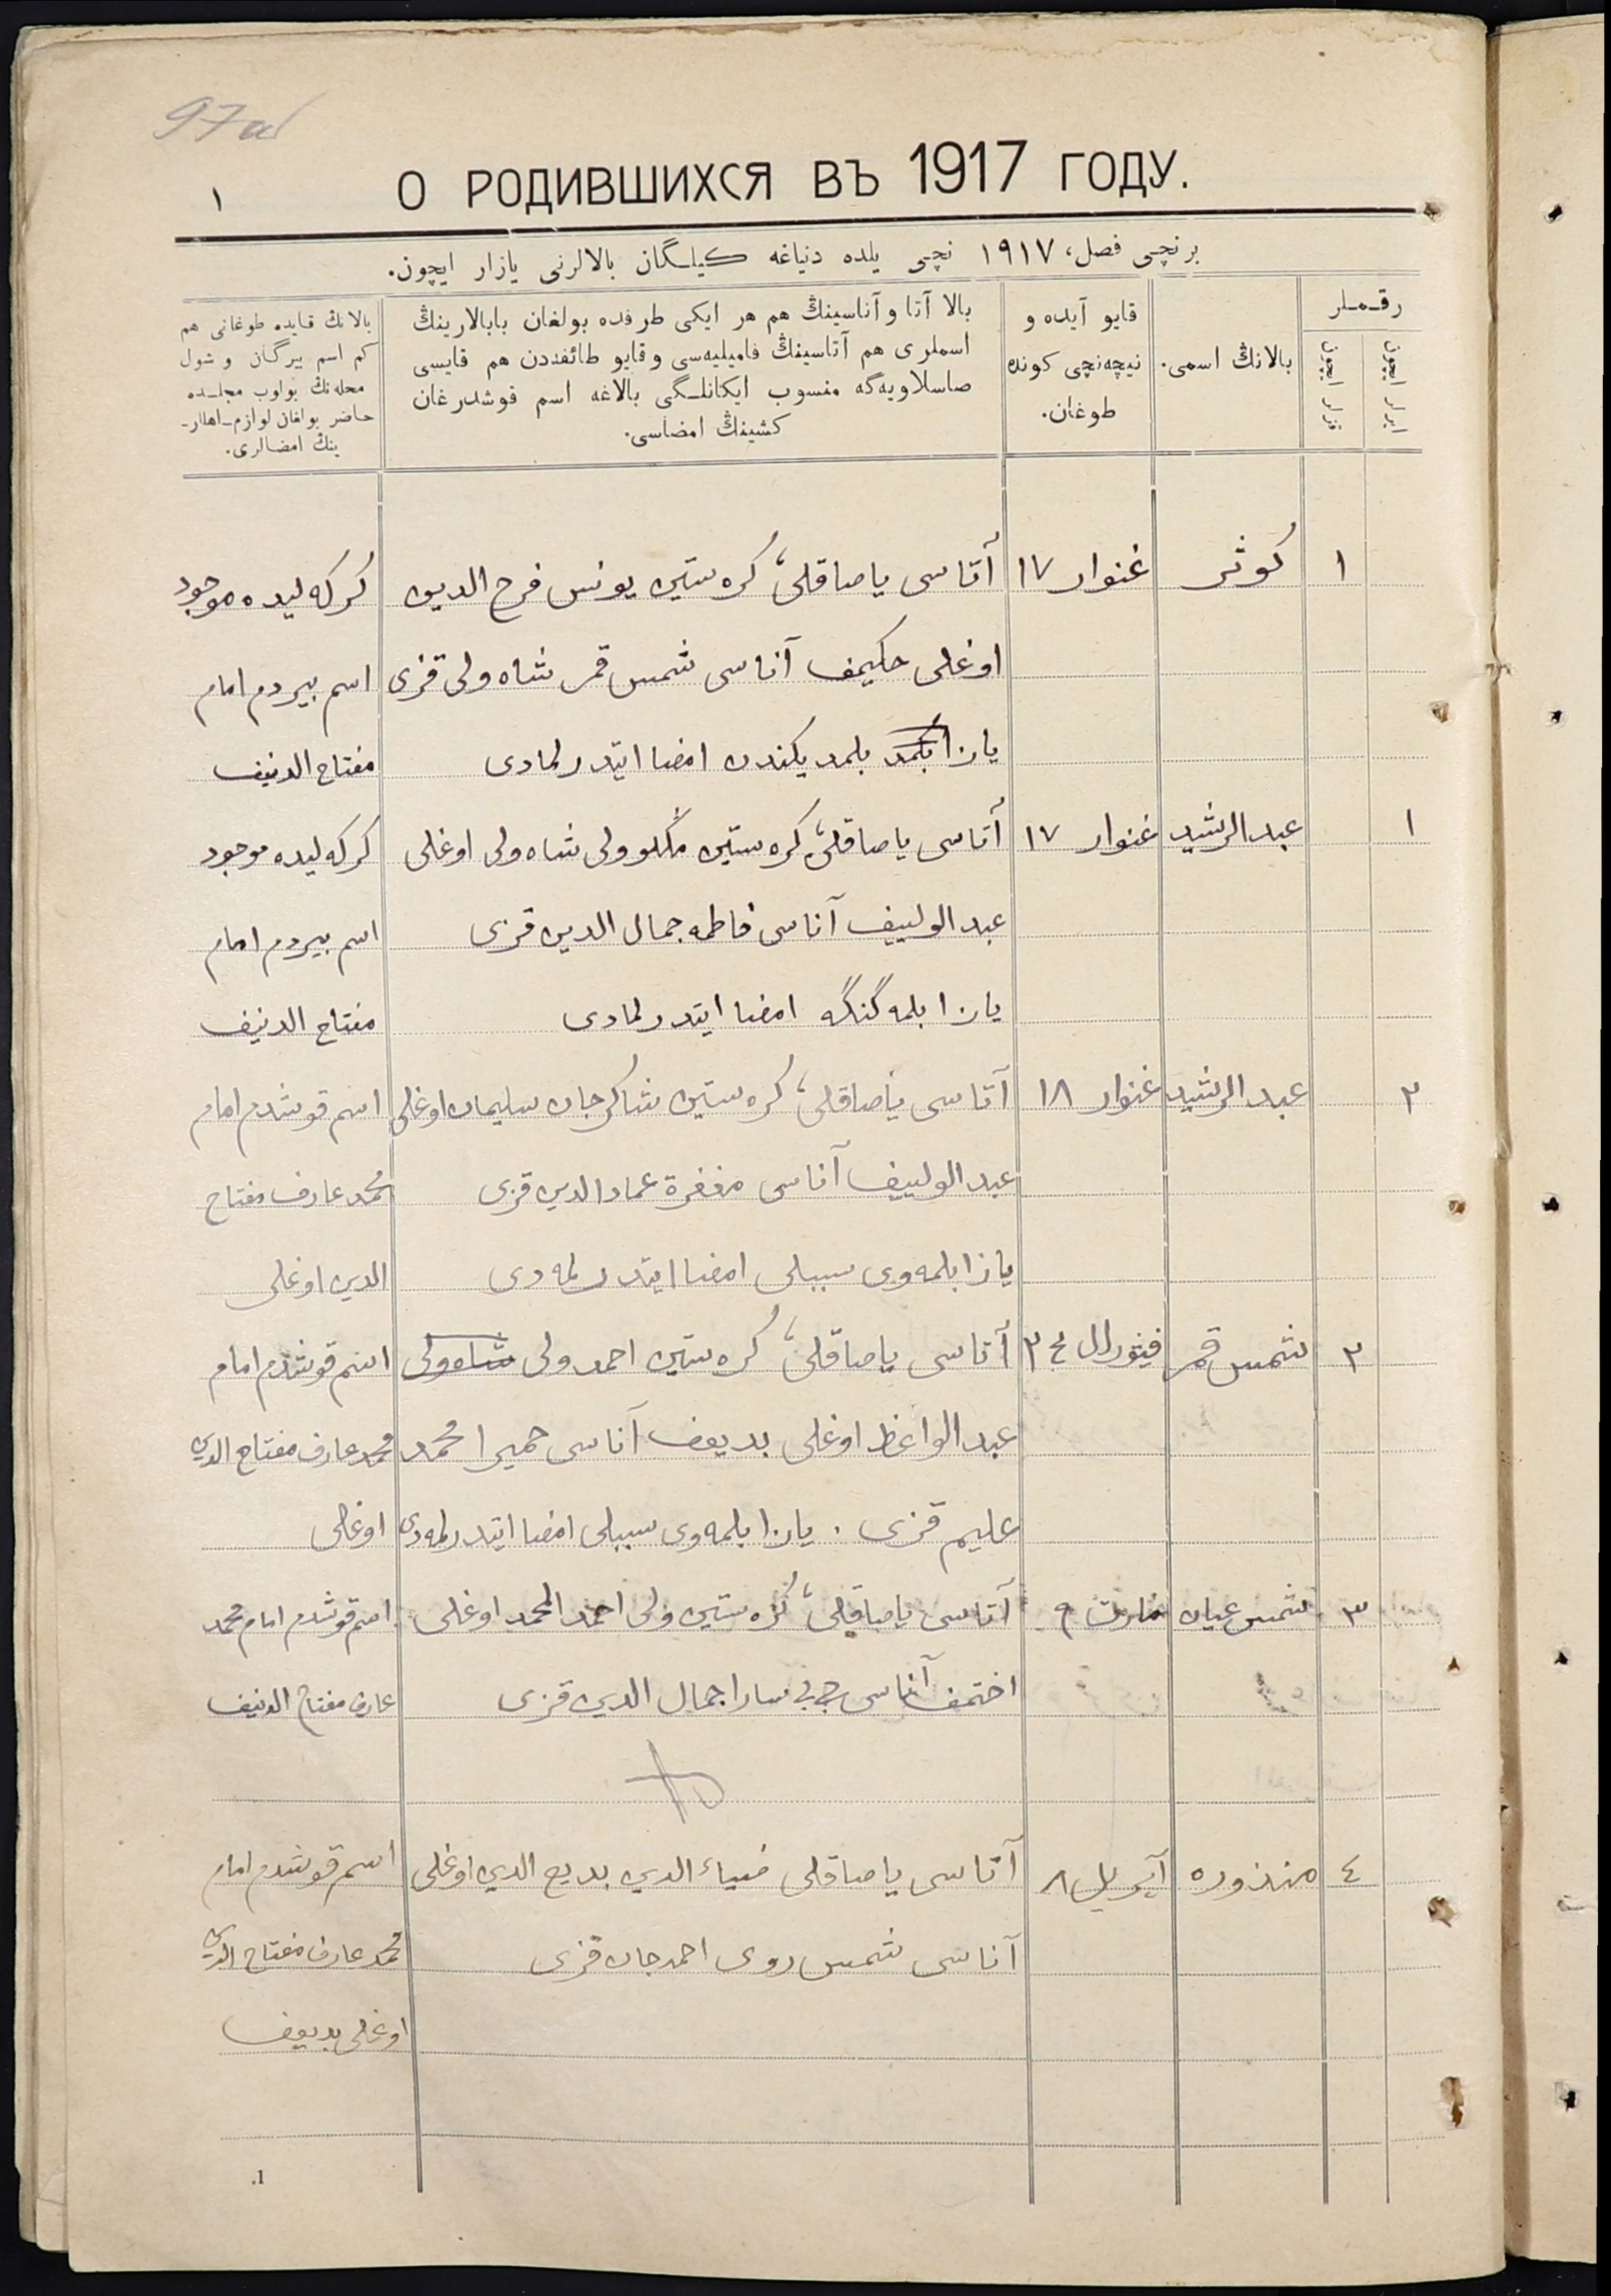 97а
О РОДИВШИХСЯ ВЪ 1917 ГОДУ.
١
برنچی فصل، ١٩١٧ نچی یلده دنیاغه کیلگان بالالرنی یازار ایچون.
رقملر
ایرلر ایچون
قزلر ایچون
بالانڭ اسمی.
قایو آیده و
نیچه‌نچی کونده
طوغان.
بالا آتا و آناسینڭ هم هر ایکی طرفده بولغان بابالارینڭ
اسملری هم آتاسینڭ فامیلیه‌سی و قایو طائفه‌دن هم قایسی
صاسلاویه‌گه منسوب ایکانلگی بالاغه اسم قوشدرغان
کشینڭ امضاسی.
بالانڭ قایده طوغانی هم
کم اسم بیرگان و شول
محله‌نڭ بولوب مجلسده
حاضر بولغان لوازم اهللر-
ینڭ امضالری.
١ کوثر غنوار ١٧ آتاسی یاصاقلی کره‌ستین یونس فرح الدین کرکه‌لیده موجود
اوغلی حکیمف آناسی شمس قمر شاه ولی قزی اسم بیردم امام
یازا بلمد بلمدیکندن امضا ایتدرلمادی مفتاح الدینف
١ عبدالرشید غنوار ١٧ آتاسی یاصاقلی کره‌ستین مڭلو ولی شاه ولی اوغلی کرکه‌لیده موجود
عبدالولییف آناسی فاطمه جمال الدین قزی اسم بیردم امام
یازا بلمه‌گنگه امضا ایتدرلمادی مفتاح الدینف
٢ عبدالرشید غنوار ١٨ آتاسی یاصاقلی کره‌ستین شاکرجان سلیمان اوغلی اسم قوشدم امام
عبدالولییف آناسی مغفرة عمادالدین قزی محمد عارف مفتاح
یازا بلمه‌وی سببلی امضا ایتدرلمه‌دی الدین اوغلی
٢ شمس قمر فیئورال آتاسی یاصاقلی کره‌ستین احمد ولی شاه ولی اسم قوشدم امام
عبدالواعظ اوغلی بدیعف آناسی حمیرا محمد محمد عارف مفتاح الدین
علیم قزی. یازا بلمه‌وی سببلی امضا ایتدرلمه‌دی اوغلی
٣ شمس عیان مارت ٩ آتاسی یاصاقلی کره‌ستین ولی احمد المحمد اوغلی اسم قوشدم امام محمد
اختمف آناسی بی بی سارا جمال الدین قزی عارف مفتاح الدینف
٤ منذوره آپریل ٨ آتاسی یاصاقلی ضیاء الدین بدیع الدین اوغلی اسم قوشدم امام
آناسی شمس روی احمدجان قزی محمد عارف مفتاح الدین
اوغلی بدیعف
1.